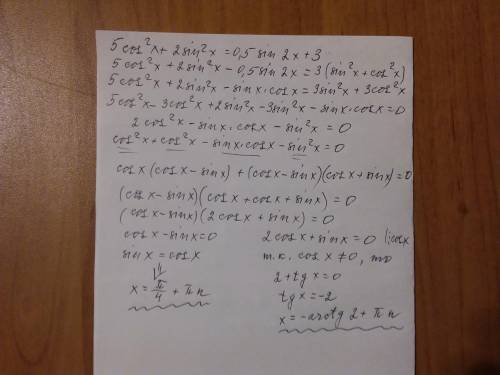 5cos²x + 2sin²x = 0,5 sin 2x + 3
5cos²x + 2sin²x − 0,5 sin 2x = 3(sin²x + cos²x)
5cos²x + 2sin²x − sinx·cosx = 3sin²x + 3cos²x
5cos²x − 3cos²x + 2sin²x − 3sin²x − sinx·cosx = 0
2cos²x − sinx·cosx − sin²x = 0
cos²x + cos²x − sinx·cosx − sin²x = 0
cosx(cosx − sinx) + (cosx − sinx)(cosx + sinx) = 0
(cosx − sinx)(cosx + cosx + sinx) = 0
(cosx − sinx)(2cosx + sinx) = 0
cosx − sinx = 0
sinx = cosx
⇓
x = π/4 + πn
2cosx + sinx = 0 |:cosx
т.к. cosx ≠ 0, то
2 + tgx = 0
tgx = −2
x = −arctg 2 + πn